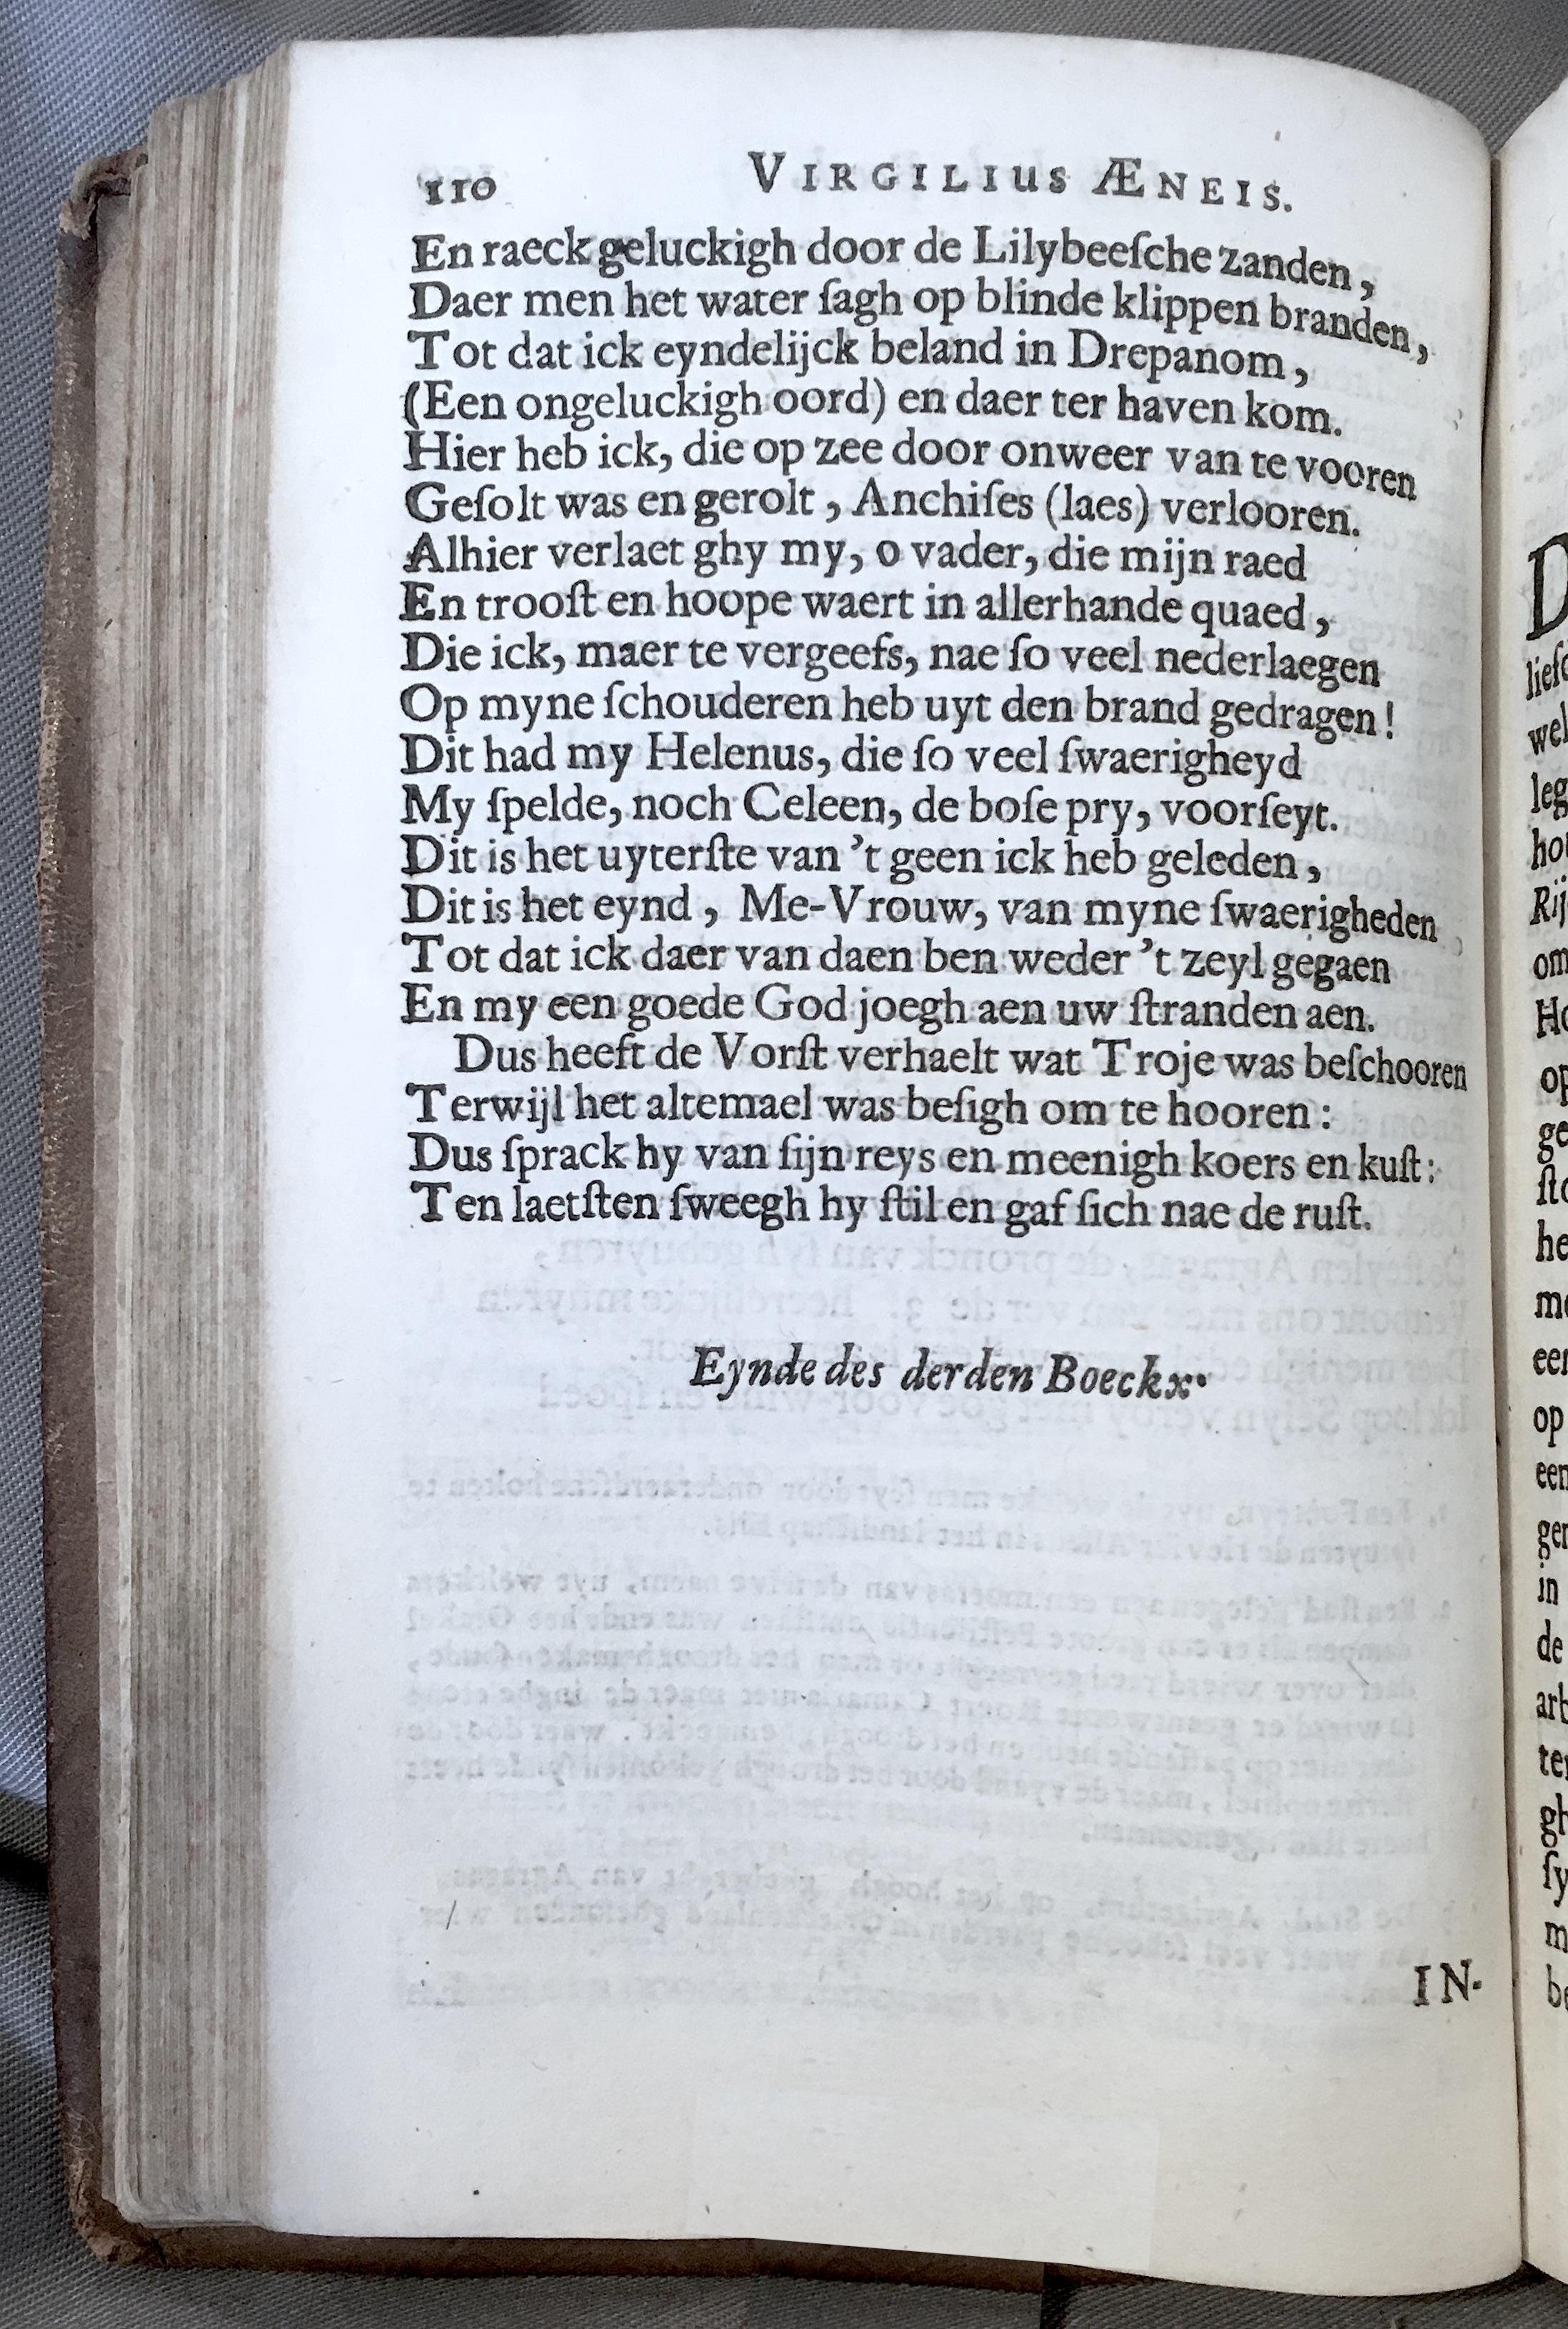 110 VIRGILIUS ÆNEIS.
En raeck geluckigh door de Lilybeeſche zanden,
Daer men het water ſagh op blinde klippen branden,
Tot dat ick eyndelijck beland in Drepanom,
(Een ongeluckigh oord) en daer ter haven kom.
Hier heb ick, die op zee door onweer van te vooren
Geſolt was en gerolt, Anchiſes (laes) verlooren.
Alhier verlaet ghy my, o vader, die mijn raed
En trooſt en hoope waert in allerhande quaed,
Die ick, maer te vergeefs, nae ſo veel nederlaegen
Op myne ſchouderen heb uyt den brand gedragen!
Dit had my Helenus, die ſo veel ſwaerigheyd
My ſpelde, noch Celeen, de boſe pry, voorſeyt.
Dit is het uyterſte van 't geen ick heb geleden,
Dit is het eynd, Me-Vrouw, van myne ſwaerigheden
Tot dat ick daer van daen ben weder 't zeyl gegaen
En my een goede God joegh aen uw ſtranden aen.
Dus heeft de Vorſt verhaelt wat Troje was beſchooren
Terwijl het altemael was beſigh om te hooren:
Dus ſprack hy van ſijn reys en meenigh koers en kuſt:
Ten laetſten ſweegh hy ſtil en gaf ſich nae de ruſt.
Eynde des derden Boeckx.
IN-